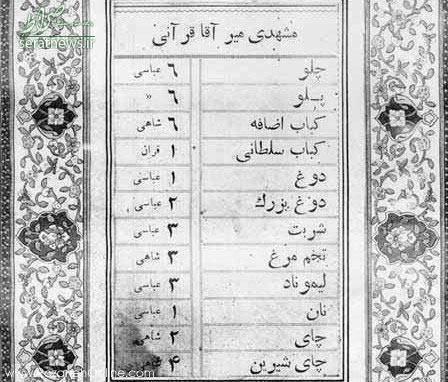 seratnews.ir
مشهدی میر آقا قرآنی
چلو ۶ عباسی
پلو ۶ »
کباب اضافه ۶ شاهی
کباب سلطانی ۱ قران
دوغ ۱ عباسی
دوغ بزرك ۲ عباسی
شربت ۳ عباسی
تخم مرغ ۳ شاهی
لیموناد ۳ عباسی
نان ۱ عباسی
چای ۲ شاهی
چای شیرین ۴ شاهی